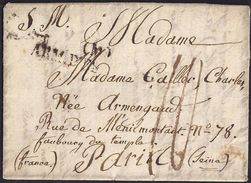 S. M.
Madame
Madame Callot Charles
Née Armengaud
Rue de Ménilmontant N.º 78.
faubourg du temple
Paris (Seine)
(france)